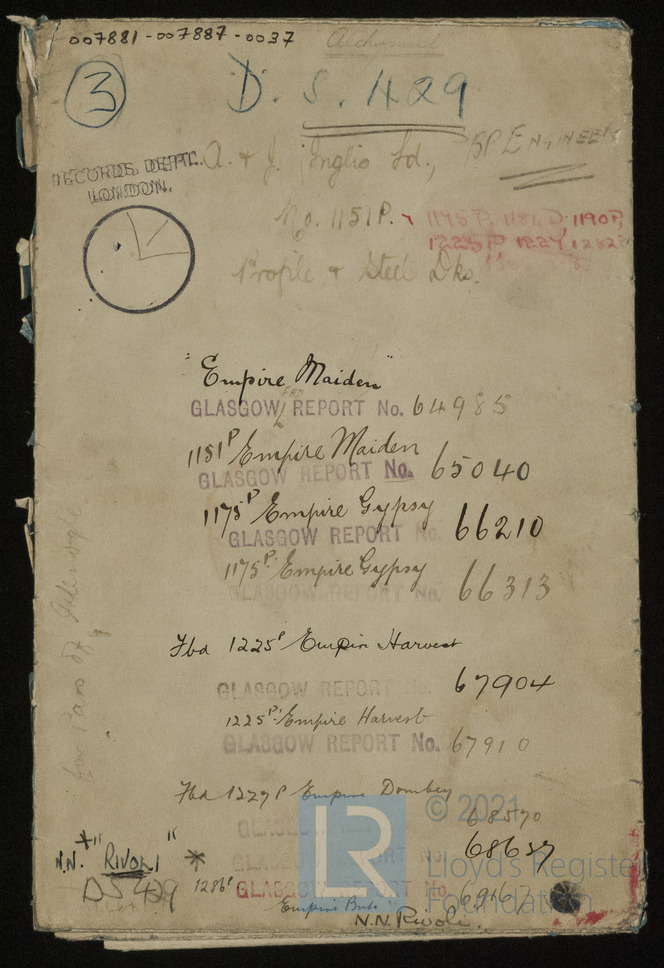 007881-007887-0037
3
D. S. 429
RECORDS DEPT.
LONDON.
A. & J. Inglis Ld.,
BP ENGINEER
No. 1151P.
1175P, 1181P, 1190P,
1225P 1227, 1282P
Profile & Steel Dks.
"Empire Maiden"
GLASGOW REPORT No. 64985
1151P Empire Maiden
GLASGOW REPORT No. 65040
1175P Empire Gypsy
GLASGOW REPORT No. 66210
1175P. Empire Gypsy
GLASGOW REPORT No. 66313
Fbd 1225P Empire Harvest
GLASGOW REPORT No. 67904
1225P. Empire Harvest
GLASGOW REPORT No. 67910
Fbd 1227P Empire Dombey
68570
68637
N.N. "RIVOLI" *
DS 429
1286P GLASGOW REPORT No.
Empire
N.N. Rivoli.
© 2021
LR
Lloyd's Register
Foundation